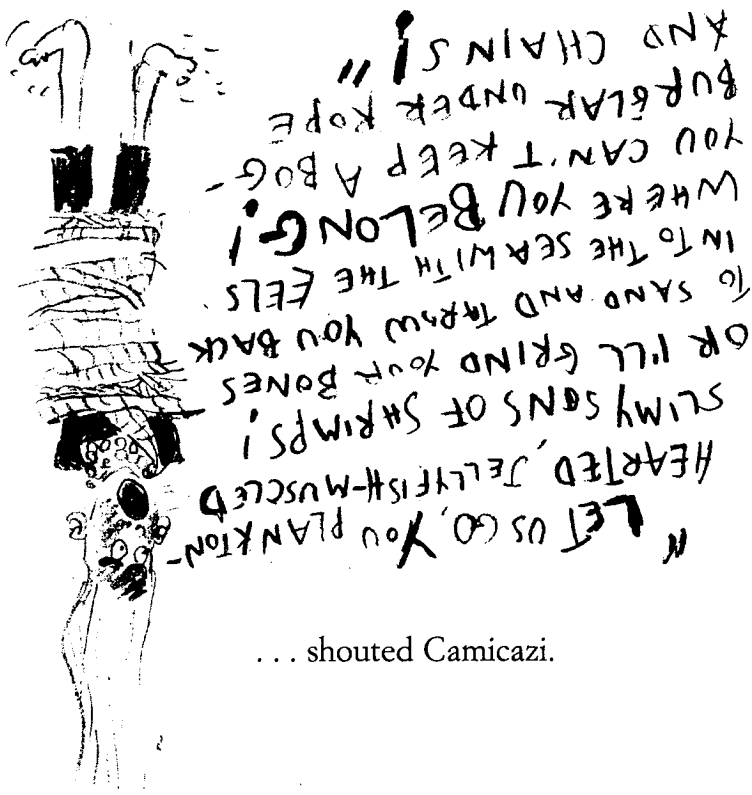 "LET US GO, YOU PLANKTON-
HEARTED, JELLYFISH-MUSCLED
SLIMY SONS OF SHRIMPS!
OR I'LL GRIND YOUR BONES
TO SAND AND THROW YOU BACK
INTO THE SEA WITH THE EELS
WHERE YOU BELONG!
YOU CAN'T KEEP A BOG-
BURGLAR UNDER ROPE
AND CHAINS!"
. . . shouted Camicazi.